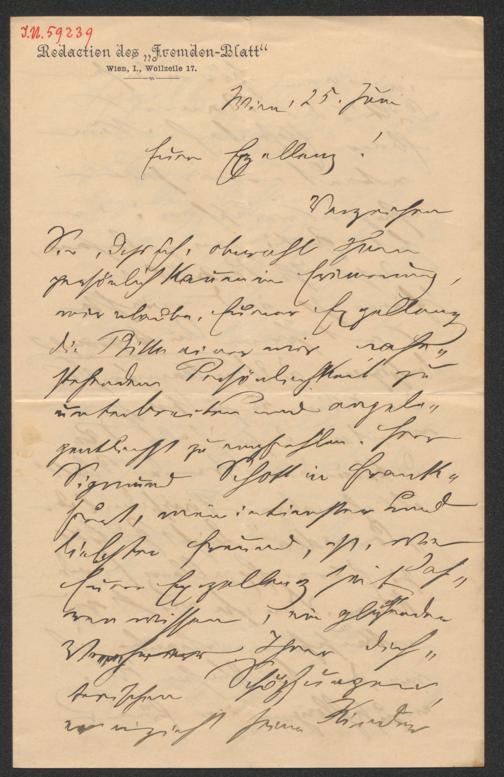 I.N. 59239
Redaction des „Fremden-Blatt“
Wien, I., Wollzeile 17.
Wien, 25. Juni
Euer Exzellenz!
Verzeihen
Sie, daß ich, obwohl Ihnen
persönlich kaum in Erinnerung,
mir erlaube, Euer Exzellenz
die Bitte einer mir nahe-
stehenden Persönlichkeit zu
unterbreiten und angele-
gentlichst zu empfehlen. Herr
Sigmund Schott in Frank-
furt, mein intimster und
liebster Freund, ist, wie
Euer Exzellenz seit Jah-
ren wissen, ein glühender
Verehrer Ihrer dich-
terischen Schöpfungen,
er erzieht seine Kinder